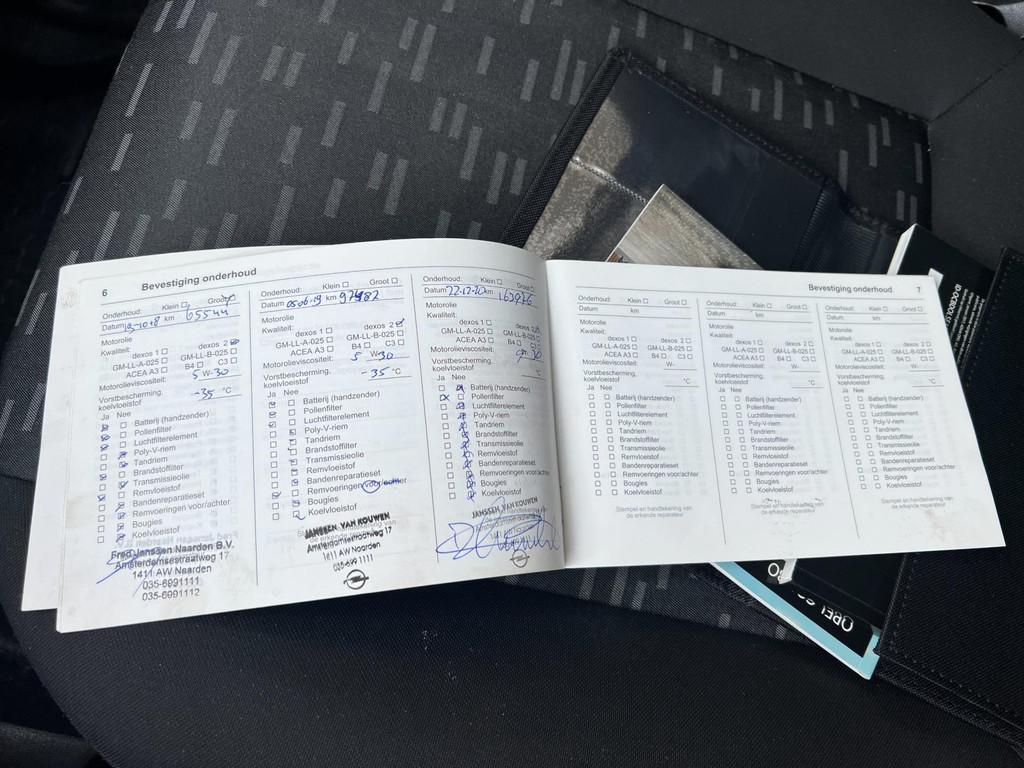 6 Bevestiging onderhoud
Onderhoud: Klein Groot
Datum 12-1018 km 65544
Motorolie
Kwaliteit:
dexos 1 dexos 2
GM-LL-A-025 GM-LL-B-025
ACEA A3 B4 C3
Motorolieviscositeit: 5 W-30
Vorstbescherming,
koelvloeistof -35 °C
Ja Nee
Batterij (handzender)
Pollenfilter
Luchtfilterelement
Poly-V-riem
Tandriem
Brandstoffilter
Transmissieolie
Remvloeistof
Bandenreparatieset
Remvoeringen voor/achter
Bougies
Koelvloeistof
Fred Janssen Naarden B.V.
Amsterdamsestraatweg 17
1411 AW Naarden
035-6991111
035-6991112
Onderhoud: Klein Groot
Datum 05-06-19 km 97482
Motorolie
Kwaliteit:
dexos 1 dexos 2
GM-LL-A-025 GM-LL-B-025
ACEA A3 B4 C3
Motorolieviscositeit: 5 W-30
Vorstbescherming,
koelvloeistof -35 °C
Ja Nee
Batterij (handzender)
Pollenfilter
Luchtfilterelement
Poly-V-riem
Tandriem
Brandstoffilter
Transmissieolie
Remvloeistof
Bandenreparatieset
Remvoeringen voor/achter
Bougies
Koelvloeistof
JANSSEN VAN KOUWEN
Amsterdamsestraatweg 17
1411 AW Naarden
035-699 1111
Onderhoud: Klein Groot
Datum 22-12-20 km
Motorolie
Kwaliteit:
dexos 1 dexos 2
GM-LL-A-025 GM-LL-B-025
ACEA A3 B4 C3
Motorolieviscositeit: 30
Vorstbescherming,
koelvloeistof °C
Ja Nee
Batterij (handzender)
Pollenfilter
Luchtfilterelement
Poly-V-riem
Tandriem
Brandstoffilter
Transmissieolie
Remvloeistof
Bandenreparatieset
Remvoeringen voor/achter
Bougies
Koelvloeistof
JANSSEN VAN KOUWEN
Amsterdamsestraatweg 17
1411 AW Naarden
035-699 1111
Bevestiging onderhoud 7
Onderhoud: Klein Groot
Datum km
Motorolie
Kwaliteit:
dexos 1 dexos 2
GM-LL-A-025 GM-LL-B-025
ACEA A3 B4 C3
Motorolieviscositeit: W-
Vorstbescherming,
koelvloeistof °C
Ja Nee
Batterij (handzender)
Pollenfilter
Luchtfilterelement
Poly-V-riem
Tandriem
Brandstoffilter
Transmissieolie
Remvloeistof
Bandenreparatieset
Remvoeringen voor/achter
Bougies
Koelvloeistof
Stempel en handtekening van
de erkende reparateur
Onderhoud: Klein Groot
Datum km
Motorolie
Kwaliteit:
dexos 1 dexos 2
GM-LL-A-025 GM-LL-B-025
ACEA A3 B4 C3
Motorolieviscositeit: W-
Vorstbescherming,
koelvloeistof °C
Ja Nee
Batterij (handzender)
Pollenfilter
Luchtfilterelement
Poly-V-riem
Tandriem
Brandstoffilter
Transmissieolie
Remvloeistof
Bandenreparatieset
Remvoeringen voor/achter
Bougies
Koelvloeistof
Stempel en handtekening van
de erkende reparateur
Onderhoud: Klein Groot
Datum km
Motorolie
Kwaliteit:
dexos 1 dexos 2
GM-LL-A-025 GM-LL-B-025
ACEA A3 B4 C3
Motorolieviscositeit: W-
Vorstbescherming,
koelvloeistof °C
Ja Nee
Batterij (handzender)
Pollenfilter
Luchtfilterelement
Poly-V-riem
Tandriem
Brandstoffilter
Transmissieolie
Remvloeistof
Bandenreparatieset
Remvoeringen voor/achter
Bougies
Koelvloeistof
Stempel en handtekening van
de erkende reparateur